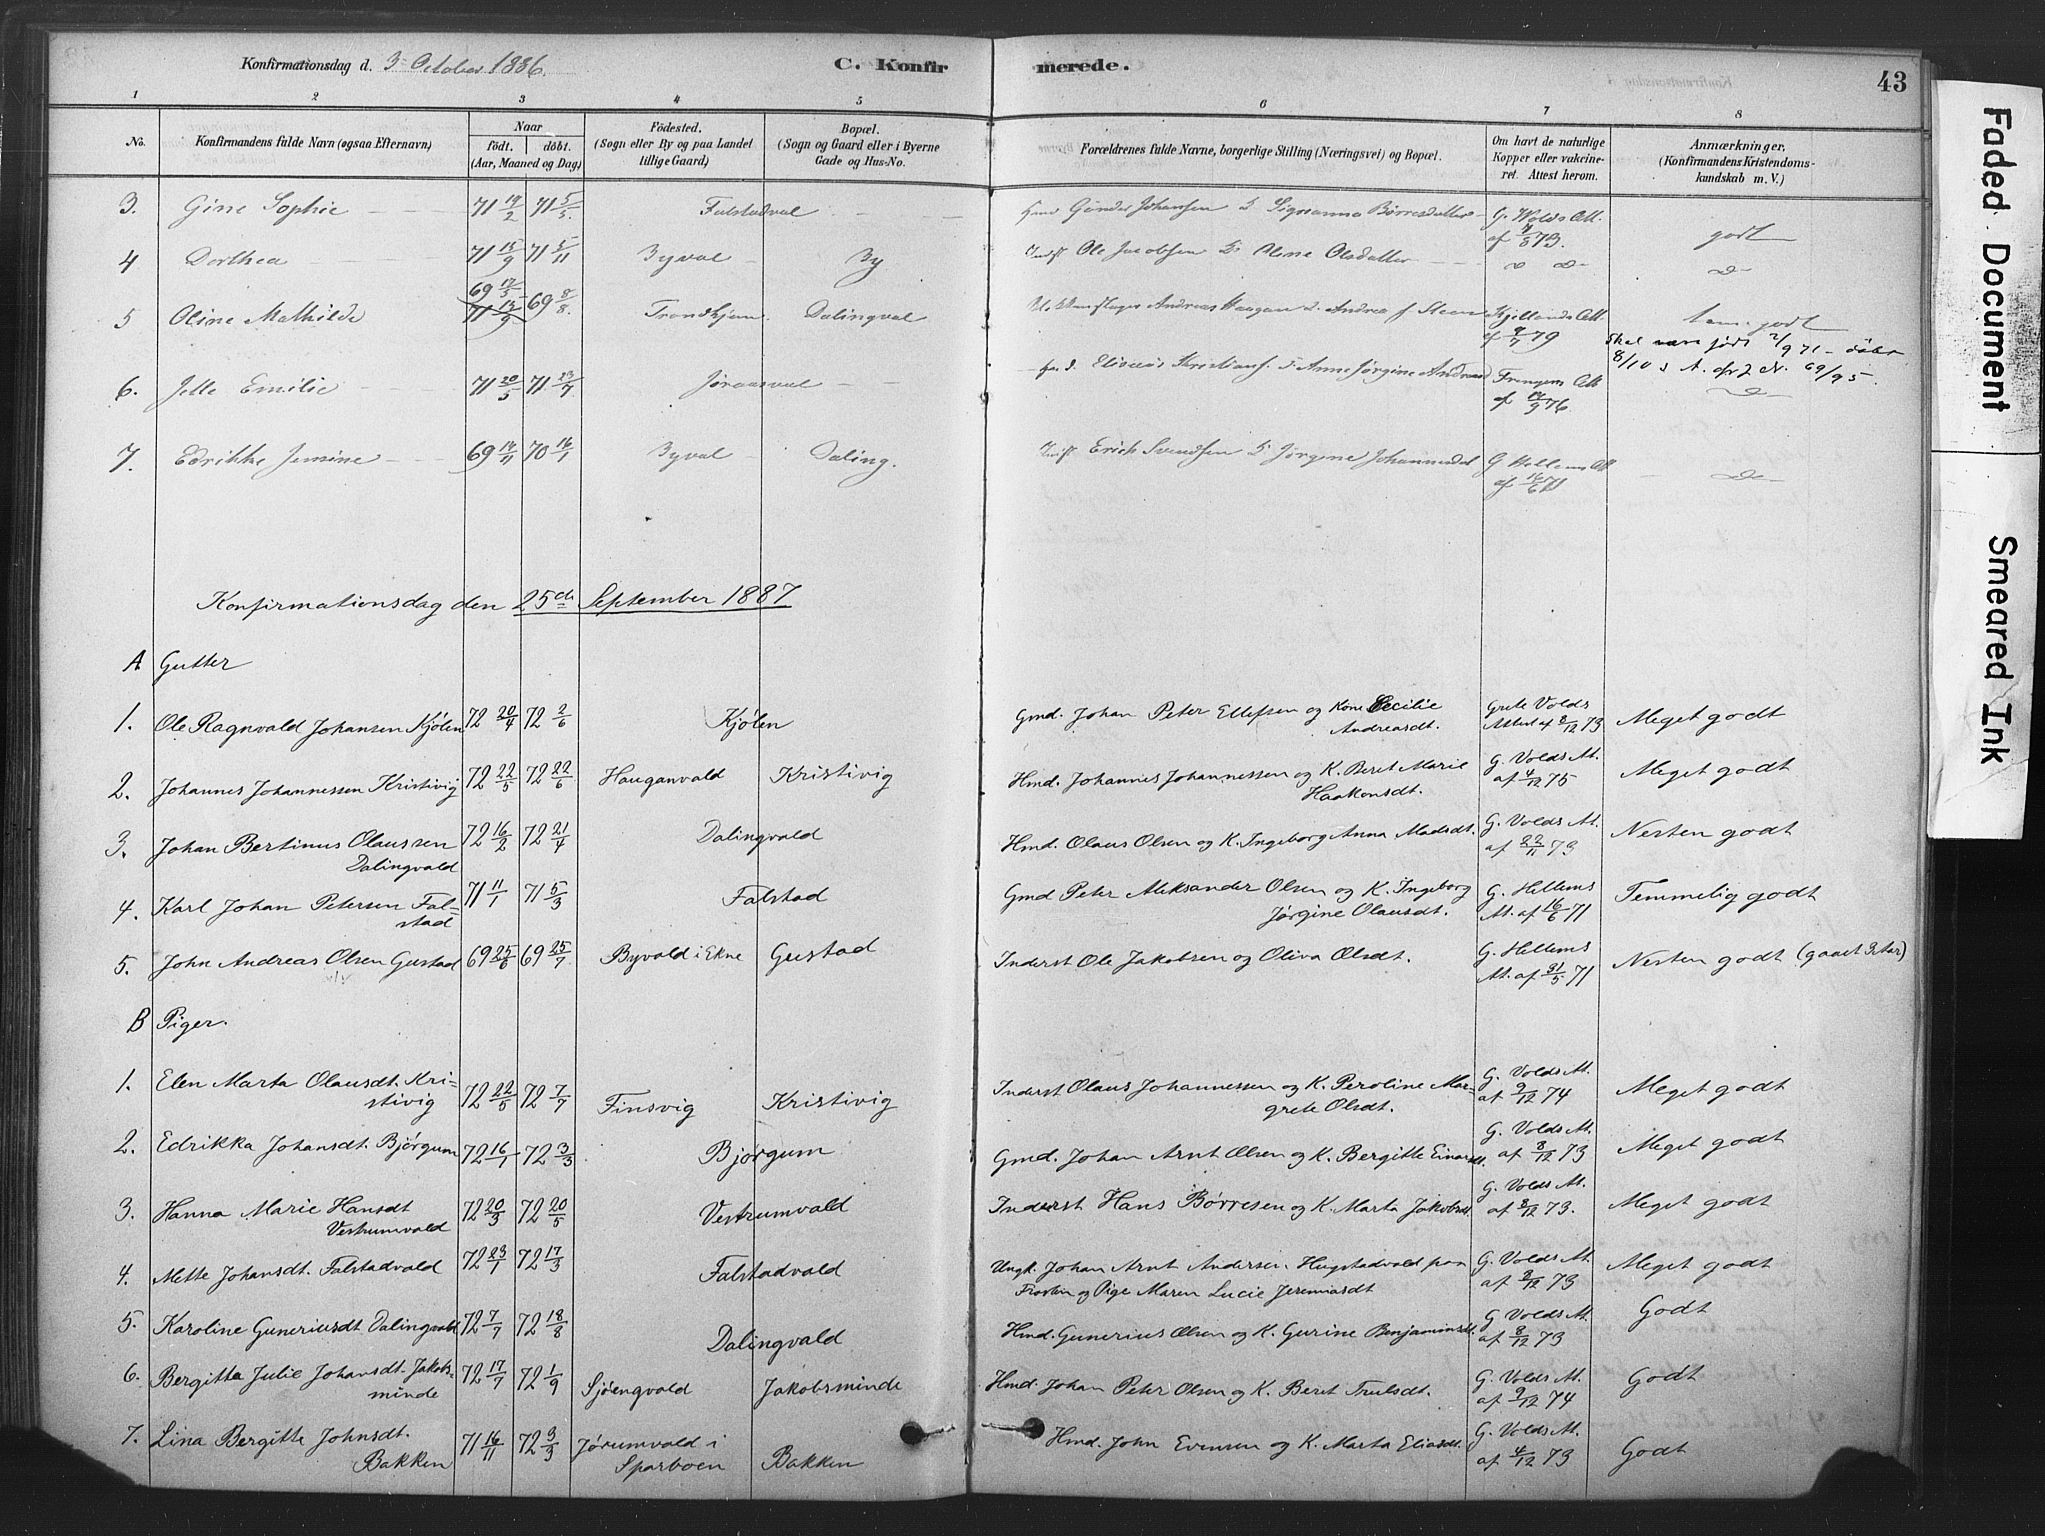 Konfirmationsdag d. 3 October 1886. C. Konfirmerede. 43
1 2 3 4 5 6 7 8
No. Konfirmandens fulde Navn (ogsaa Efternavn) Naar født. døbt. (Aar, Maaned og Dag) Födested. (Sogn eller By og paa Landet tillige Gaard) Bopæl. (Sogn og Gaard eller i Byerne Gade og Hus-No. Forældrenes fulde Navne, borgerlige Stilling (Næringsvei) og Bopæl. Om havt de naturlige Kopper eller vakcineret. Attest herom. Anmærkninger. (Konfirmandens Kristendomskundskab m. V.)
3. Gine Sophie 71 19/2 71 5/5 Falstadval Gunder Johansen Børresdatter G. Volds Att. af 4/8 73. godt
4 Dorthea 71 15/9 71 5/11 Byval By Inderst Ole Jacobsen Olsdatter
5 Oline Mathilde 69 69 8/8 Trondhjem Dalingval Andreas Haagan Andrea Steen Att af 79 godt
Skal være født 2/9 71 - døbt 8/10 69/95.
6. Jette Emilie 71 20/5 71 23/7 Joraasval Anne Jørgine Att af 76
7. Edrikke Jensine 69 14/11 70 16/1 Byval Daling. Inderst Erich Svendsen Jørgine G Hellems Att af 16/6 71
Konfirmationsdag den 25de September 1887
A Gutter
1. Ole Ragnvald Johansen Kjölen 72 20/4 72 2/6 Kjölen Gmd. Johan Peter Ellefsen og Kone Cecilie Andreasdt. Grete Volds Attest af 8/12 73 Meget godt
2. Johannes Johannessen Kristivig 72 22/5 72 22/6 Hauganvald Kristivig Hmd. Johannes Johannessen og K. Beret Marie Haakonsdt. G. Volds At. af 4/12 75 Meget godt
3. Johan Bertinus Olaussen Dalingvald 72 16/2 72 21/4 Dalingvald Hmd. Olaus Olsen og K. Ingeborg Anna Madsdt. G. Volds At. af 22/11 73 Nesten godt
4. Karl Johan Petersen Falstad 71 11/1 71 5/3 Falstad Gmd Peter Aleksander Olsen og K. Ingeborg Jørgine Olausdt. G. Hellems At. af 16/6 71 Temmelig godt
5. John Andreas Olsen Gustad 69 25/6 69 25/7 Byvald i Ekne Gustad Inderst Ole Jakobsen og Oliva Olsdt. G. Hellems At. af 31/5 71 Nesten godt (gaaet 3 Aar)
B Piger.
1. Elen Marta Olausdt. Kristivig 72 22/5 72 7/7 Finsvig Kristivig Inderst Olaus Johannessen og K. Peroline Margrete Olsdt. G. Volds At. af 9/12 74 Meget godt
2. Edrikka Johansdt. Bjørgum 72 16/1 72 3/3 Bjørgum Gmd. Johan Arnt Olsen og K. Bergitte Einarsdt. G. Volds At. af 8/12 73 Meget godt
3. Hanna Marie Hansdt Vestrumvald 72 20/3 72 20/5 Vestrumvald Inderst Hans Børresen og K. Marta Jakobsdt. G. Volds At. af 8/12 73. Meget godt
4. Mette Johansdt. Falstadvald 72 23/1 72 17/3 Falstadvald Ungk. Johan Arnt Andersen Hugstadvald paa Frosten og Pige Maren Lucie Jeremiasdt G. Volds At. af 8/12 73 Meget godt
5. Karoline Guneriusdt Dalingvald 72 7/7 72 18/8 Dalingvald Hmd. Gunerius Olsen og K. Gurine Benjaminsdt. G. Volds At. af 8/12 73 Godt
6. Bergitta Julie Johansdt. Jakobsminde 72 17/7 72 1/9 Sjöengvald Jakobsminde Hmd. Johan Peter Olsen og K. Beret Trulsdt. G. Volds At. af 9/12 74 Godt
7. Lina Bergitte Johnsdt. Bakken 71 16/11 72 3/3 Jörumvald i Sparboen Bakken Hmd. John Evensen og K. Marta Eliasdt. G. Volds At. af 4/12 73 Godt
Faded Document
Smeared Ink